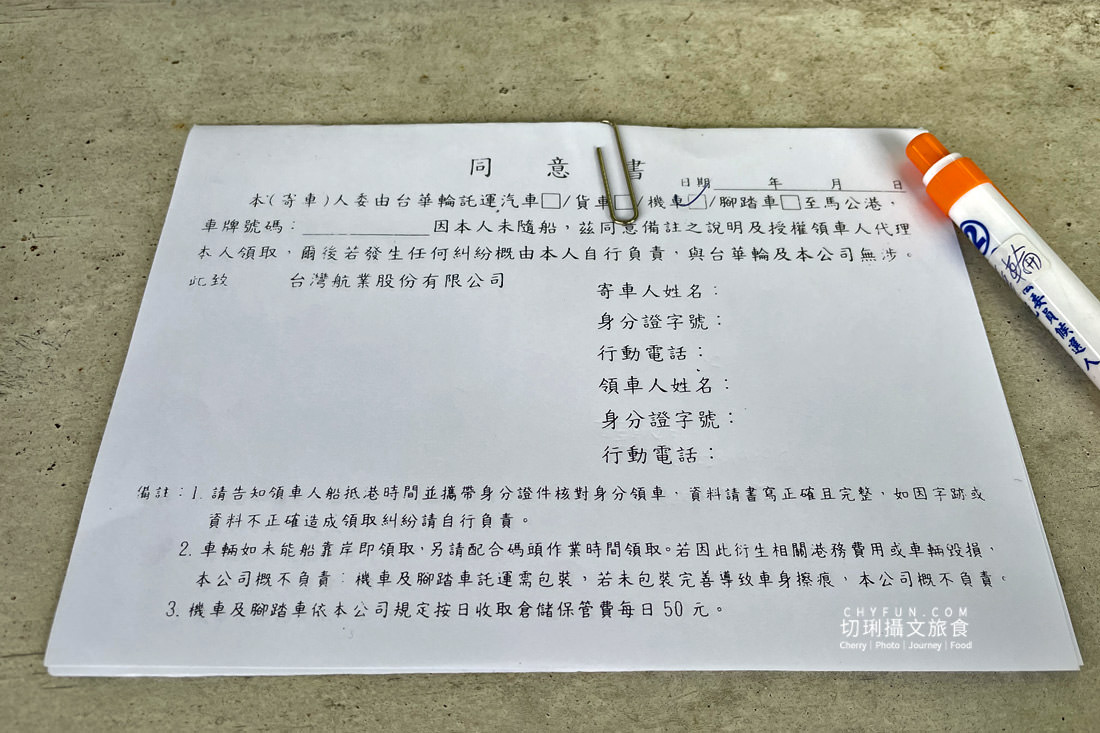 同意書
日期 年 月 日
本(寄車)人委由台華輪託運汽車□/貨車□/機車☑/腳踏車□至馬公港，
車牌號碼：__________因本人未隨船，茲同意備註之說明及授權領車人代理
本人領取，爾後若發生任何糾紛概由本人自行負責，與台華輪及本公司無涉。
此致 台灣航業股份有限公司
寄車人姓名：
身分證字號：
行動電話：
領車人姓名：
身分證字號：
行動電話：
備註：1. 請告知領車人船抵港時間並攜帶身分證件核對身分領車，資料請書寫正確且完整，如因字跡或
資料不正確造成領取糾紛請自行負責。
2. 車輛如未能船靠岸即領取，另請配合碼頭作業時間領取。若因此衍生相關港務費用或車輛毀損，
本公司概不負責：機車及腳踏車託運需包裝，若未包裝完善導致車身擦痕，本公司概不負責。
3. 機車及腳踏車依本公司規定按日收取倉儲保管費每日50元。
②
輪
委員候選人
CHYFUN.COM
切琍攝文旅食
Cherry | Photo | Journey | Food